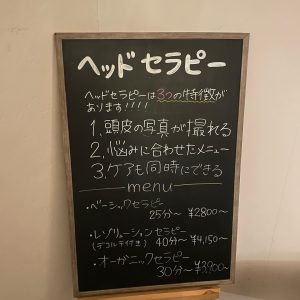 ヘッドセラピー
ヘッドセラピーは3つの特徴が
あります!!!!
1.頭皮の写真が撮れる
2.悩みに合わせたメニュー
3.ケアも同時にできる
menu
・ベーシックセラピー
25分～ ¥2800～
・レゾリューションセラピー
(デコルテ付き) 40分～ ¥4,150～
・オーガニックセラピー
30分～ ¥3,900～